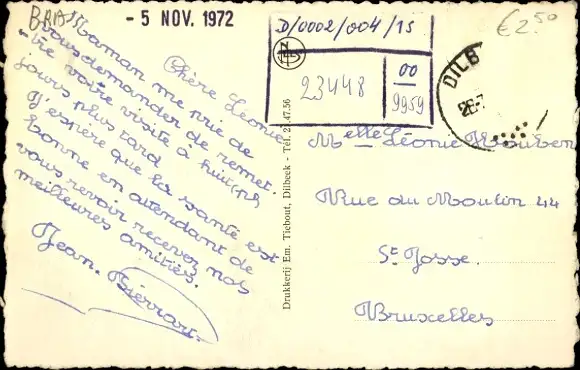 BRA
- 5 NOV. 1972
€ 2.50
D/0002/004/15
23448
00
9959
DILB
Chère Léonie
Maman me prie de
vous demander de remet-
tre votre visite à huit jrs
jours plus tard
J'espère que la santé est
bonne en attendant de
vous revoir recevez nos
meilleures amitiés.
Jean. Pierrart.
Drukkerij Em. Tiebout, Dilbeek - Tél. 2 .47.56
Melle Léonie
Rue du Moulin 44
St Josse.
Bruxelles